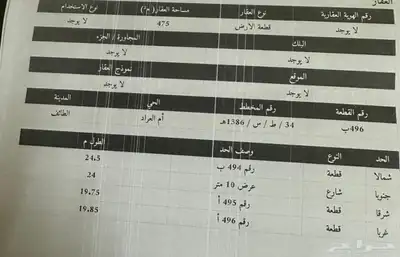 العقار
رقم الهوية العقارية نوع العقار مساحة العقار( م٢) نوع الاستخدام
لا يوجد قطعة الارض 475 لا يوجد
البلك المجاورة / الجزء
لا يوجد لا يوجد
الموقع نموذج العقار
لا يوجد لا يوجد
رقم القطعة رقم المخطط الحي المدينة
496ب 34 / ط / س / 1386هـ أم العراد الطائف
الحد النوع وصف الحد الطول م
شمالا قطعة رقم 494 ب 24.5
جنوبا شارع عرض 10 متر 24
شرقا قطعة رقم 495 أ 19.75
غربا قطعة رقم 496 أ 19.85
حراج